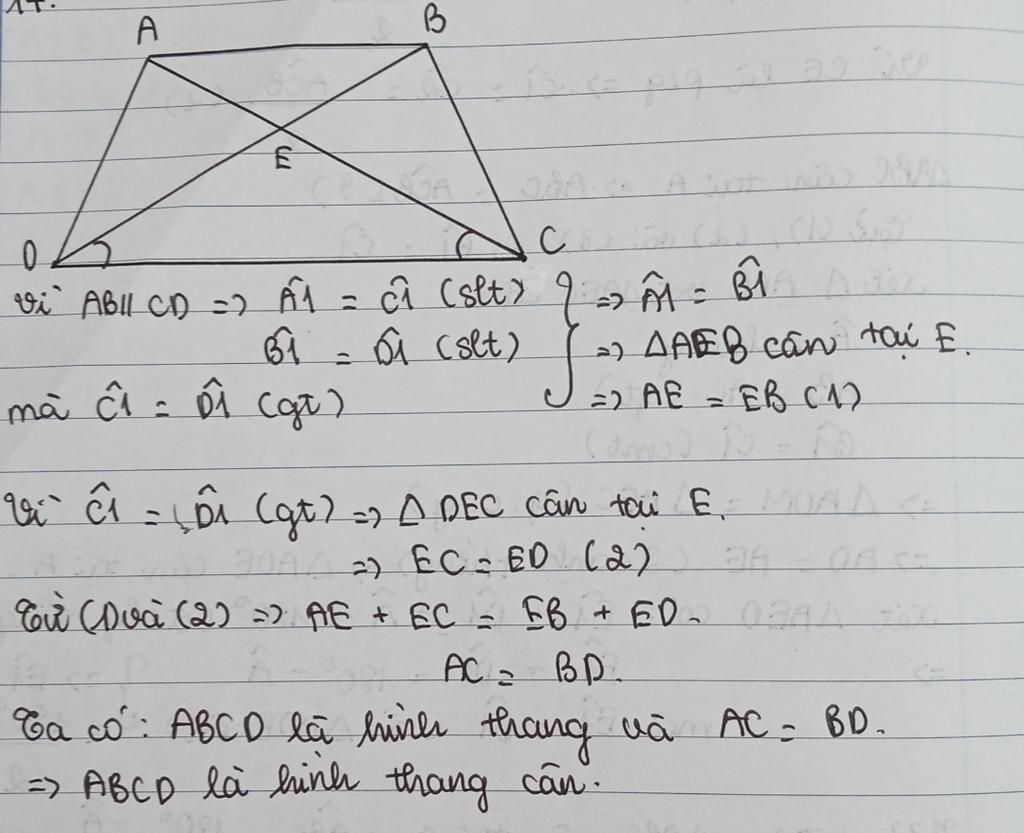 17.
A
B
E
D
C
Vì AB // CD => Â1 = Ĉ1 (slt)
B̂1 = D̂1 (slt)
mà Ĉ1 = D̂1 (gt)
=> Â1 = B̂1
=> ΔAEB cân tại E.
=> AE = EB (1)
Vì Ĉ1 = D̂1 (gt) => Δ DEC cân tại E.
=> EC = ED (2)
Từ (1) và (2) => AE + EC = EB + ED.
AC = BD.
Ta có: ABCD là hình thang và AC = BD.
=> ABCD là hình thang cân.